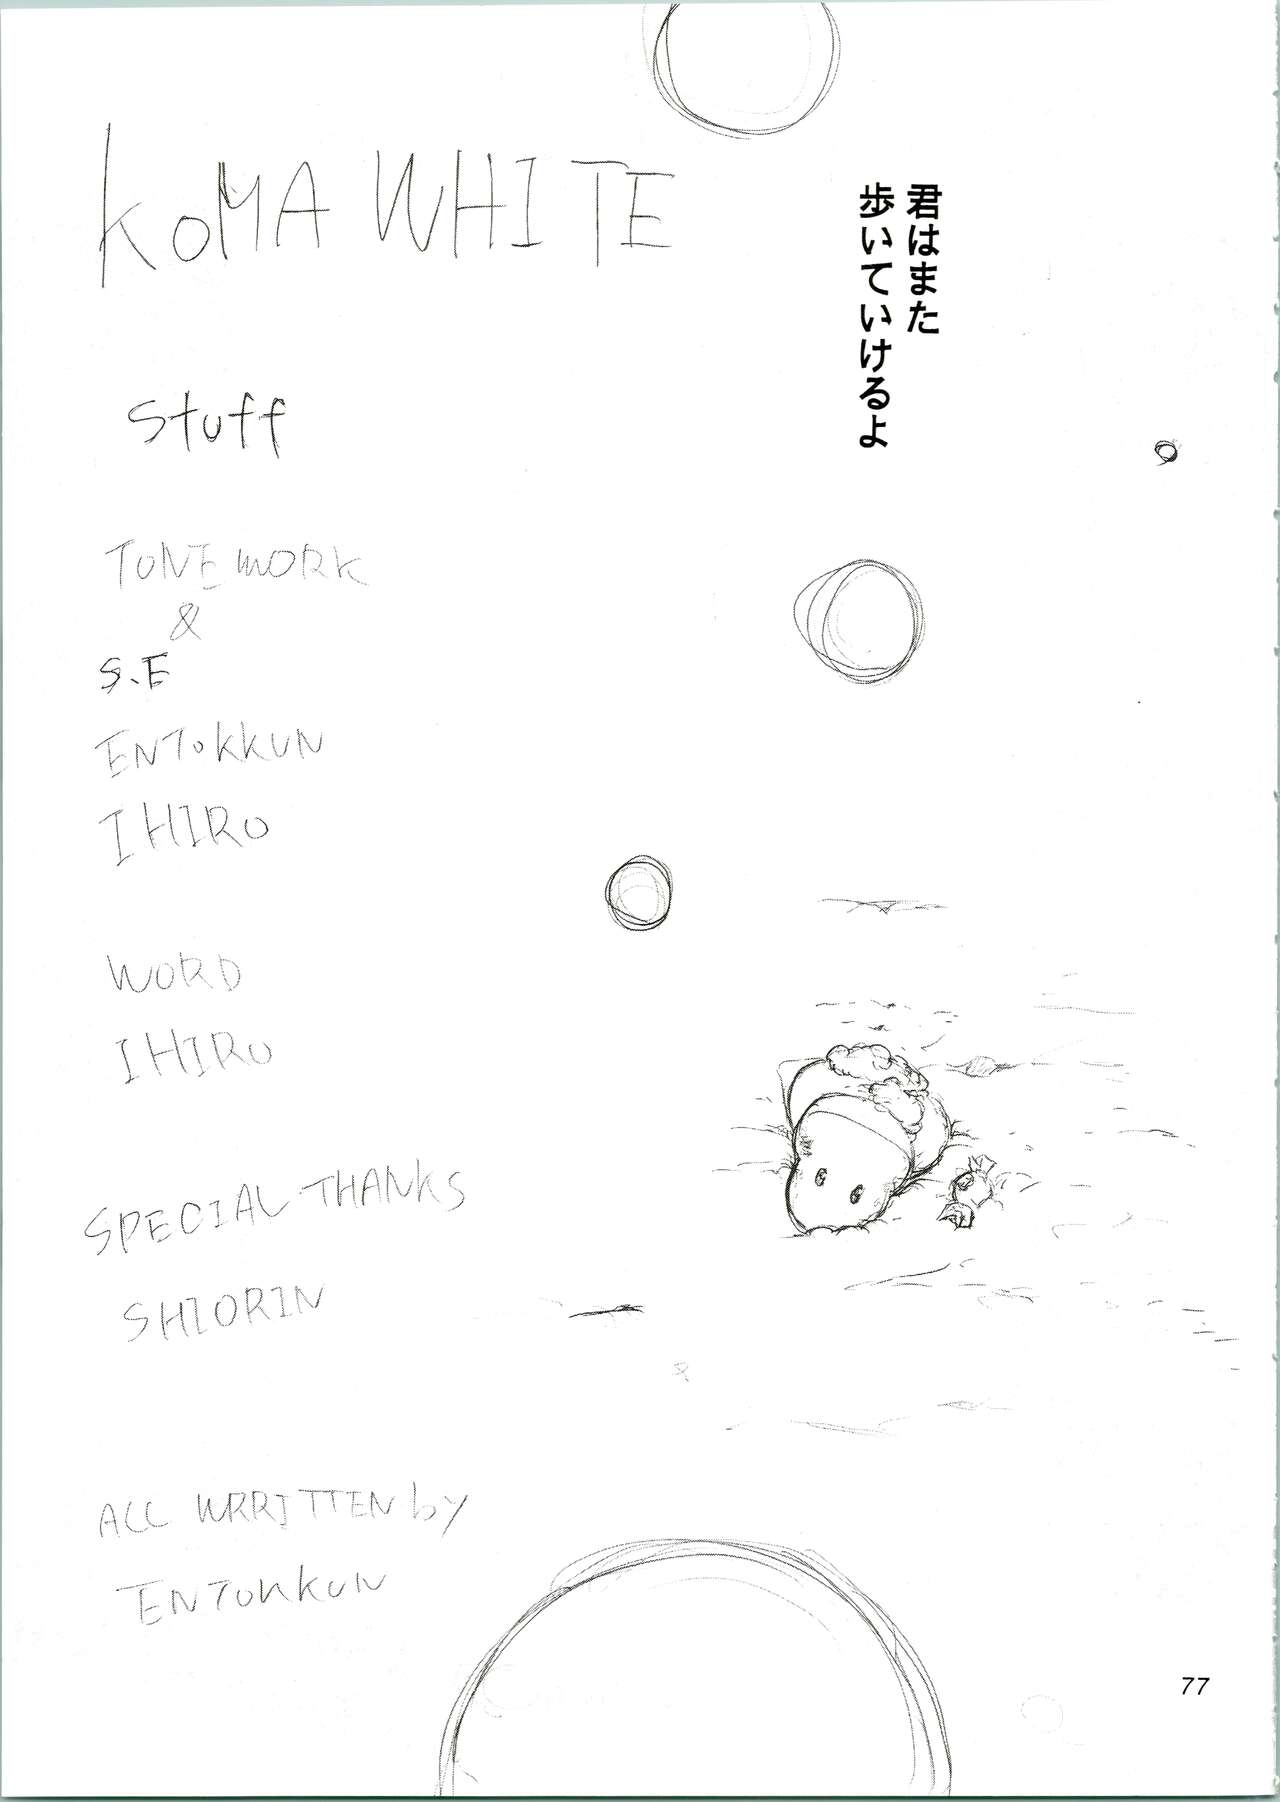 KOMA WHITE
君はまた
歩いていけるよ
Stuff
TONE WORK
&
S.E
ENTOKKUN
IHIRO
WORD
IHIRO
SPECIAL THANKS
SHIORIN
ALL WRRITTEN by
ENTOKKUN
77